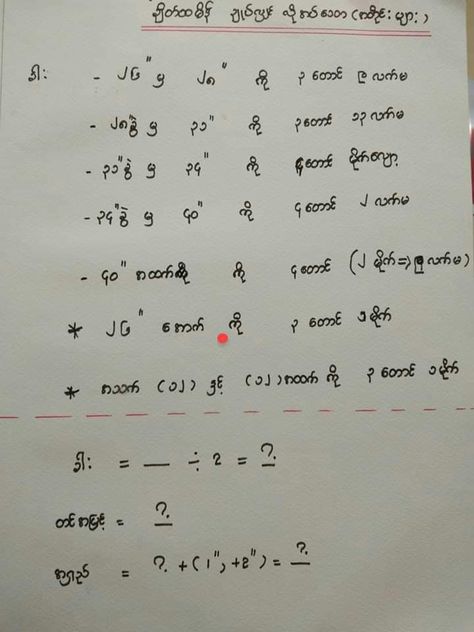 ချိတ်ထမိန် ချုပ်လျှင် လိုအပ်သော (အတိုင်းများ)
ခါး - ၂၆" မှ ၂၈" ကို ၃ တောင် ၉ လက်မ
- ၂၈"ခွဲ မှ ၃၁" ကို ၃တောင် ၁၃ လက်မ
- ၃၁"ခွဲ မှ ၃၄" ကို ၄တောင် မိုက်လျော့
- ၃၄"ခွဲ မှ ၄၀" ကို ၄တောင် ၂ လက်မ
- ၄၀" အထက် ကို ၄တောင် (၂ မိုက် => လက်မ)
* ၂၆" အောက် ကို ၃ တောင် ၁မိုက်
* အသက် (၁၂) နှင့် (၁၂) အထက် ကို ၃ တောင် ၁မိုက်
ခါး = — ÷ 2 = ?
တင်အမြင့် = ?
အရှည် = ? + (1", +2") = ?